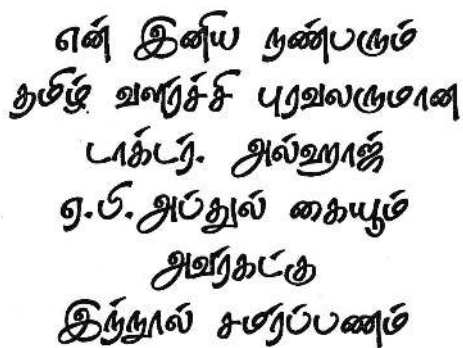 என் இனிய நண்பரும்
தமிழ் வளர்ச்சி புரவலருமான
டாக்டர். அல்ஹாஜ்
ஏ.பி. அப்துல் கையூம்
அவர்கட்கு
இந்நூல் சமர்ப்பணம்